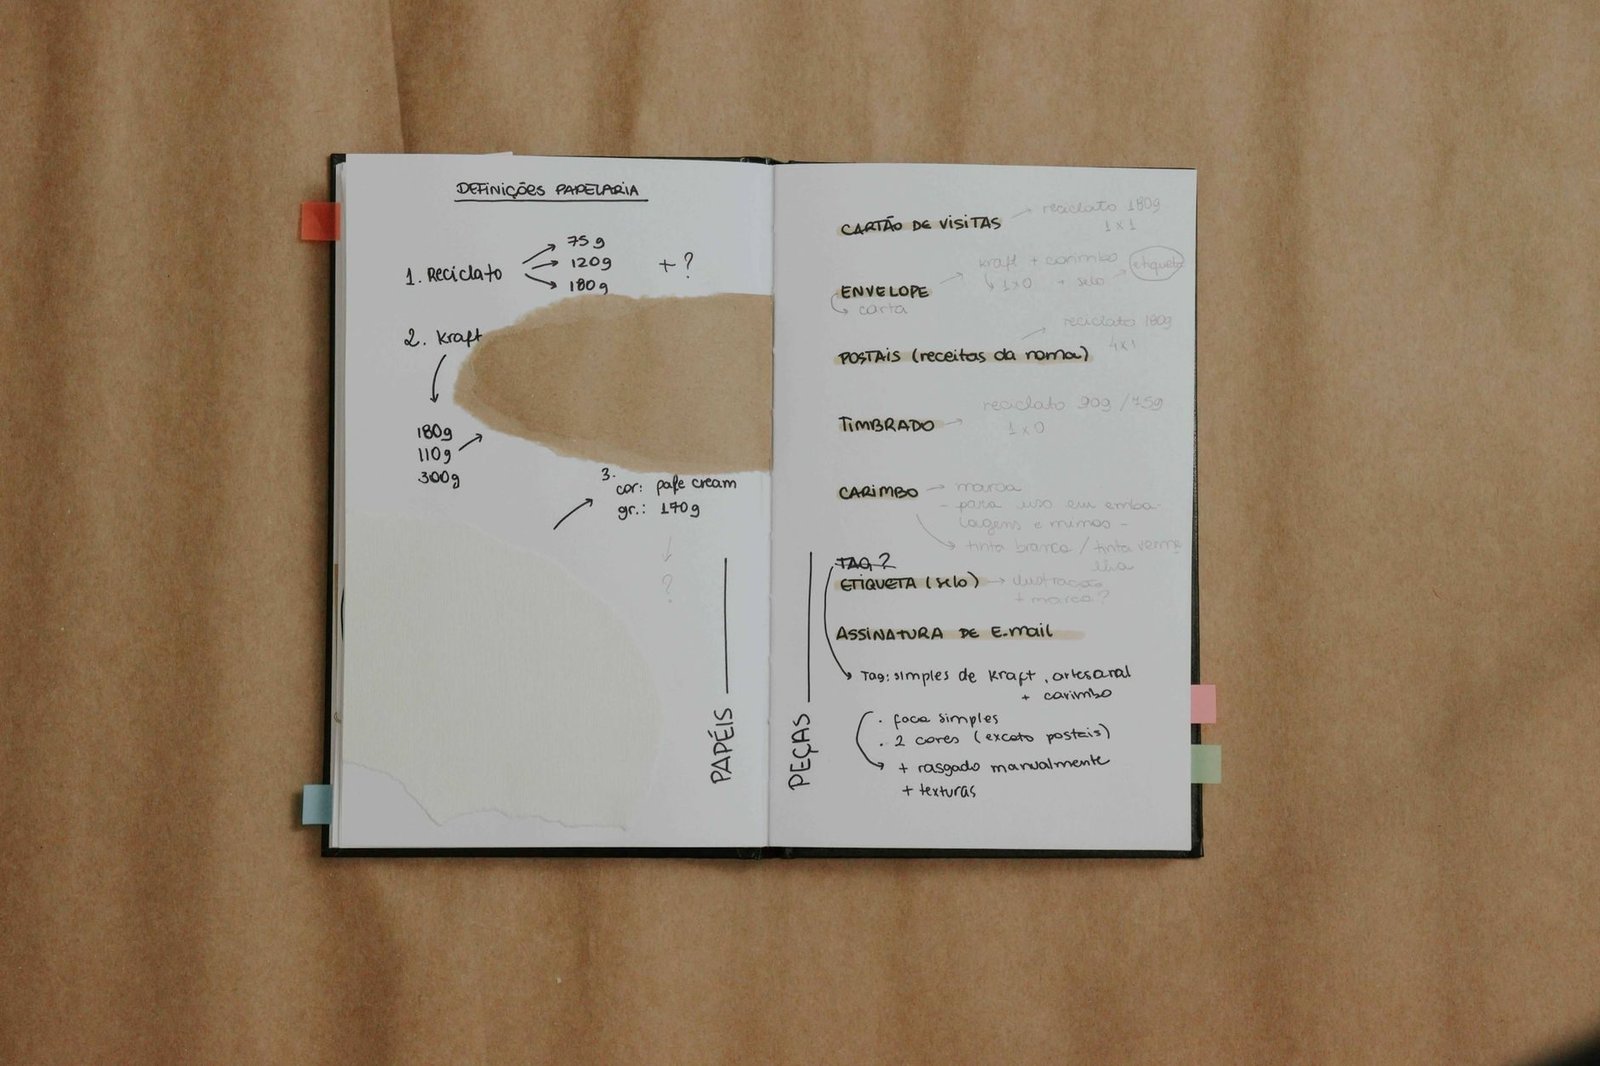 DEFINIÇÕES PAPELARIA
1. Reciclato
75g
120g
180g
+ ?
2. Kraft
180g
110g
300g
3.
cor: pafe cream
gr.: 170g
?
PAPÉIS
PEÇAS
CARTÃO DE VISITAS
reciclato 180g
1x1
ENVELOPE
kraft + carimbo
1x0 + selo
etiqueta
carta
POSTAIS (receitas da noma)
reciclato 180g
4x1
TIMBRADO
reciclato 90g / 75g
1x0
CARIMBO
marca
- para uso em emba-
lagens e mimos -
tinta branca / tinta verme
lha
TAG?
ETIQUETA (selo)
ilustração
+ marca?
ASSINATURA DE E-mail
Tag: simples de kraft, artesanal
+ carimbo
. faca simples
. 2 cores (exceto postais)
+ rasgado manualmente
+ texturas